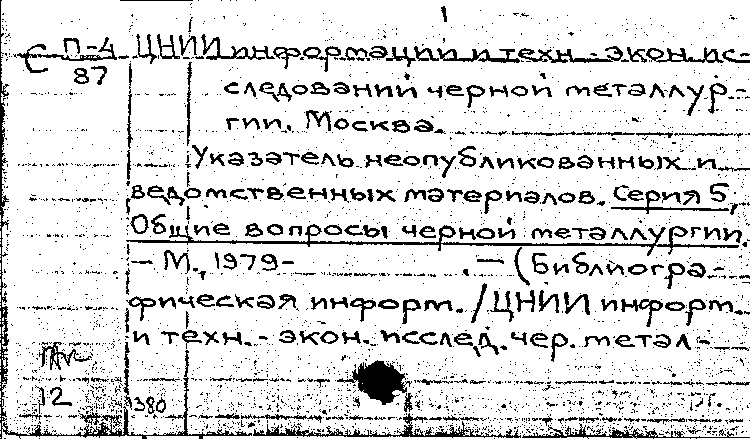 С П-4 ЦНИИ информации и техн.-экон. ис-
87 следований черной металлур-
гии. Москва.
Указатель неопубликованных и
ведомственных материалов. Серия 5,
Общие вопросы черной металлургии.
— М., 1979- . — (Библиогра-
фическая информ. / ЦНИИ информ.
и техн.-экон. исслед. чер. метал-
12 1380